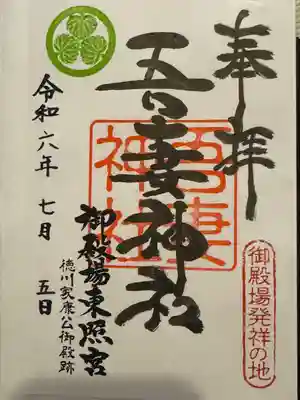 奉拝
吾妻神社
吾妻神社
御殿場発祥の地
御殿場東照宮
徳川家康公御殿跡
令和六年 七月 五日